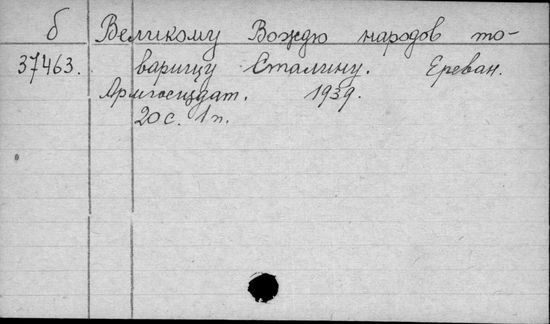 б Великому Вождю народов то-
37463. варищу Сталину. Ереван.
Армгосиздат. 1939.
20с. 1п.